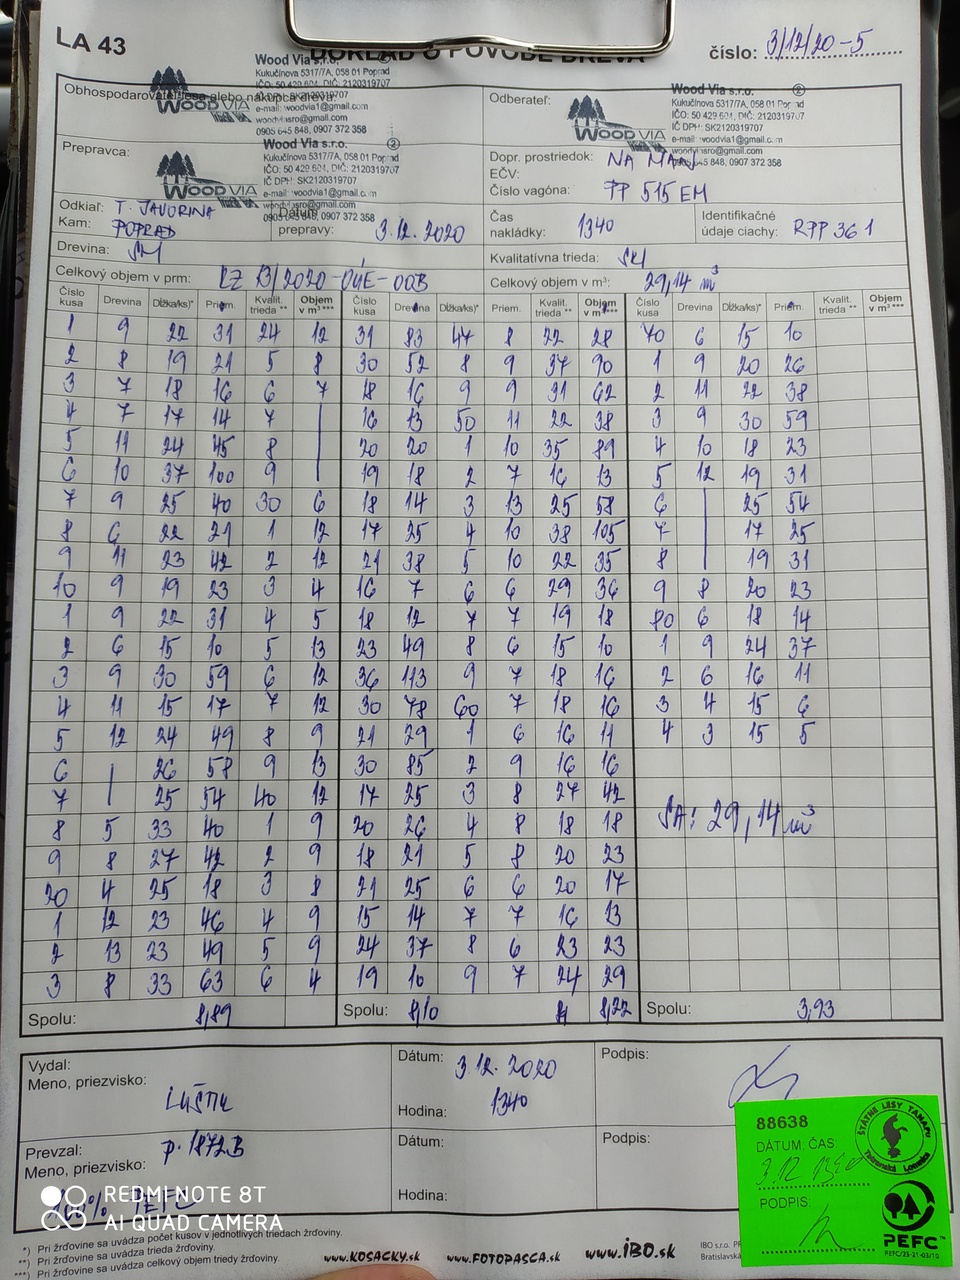 LA 43
DOKLAD O PÔVODE DREVA
číslo: 3/12/20-5
Obhospodarovateľ lesa alebo nákupca dreva:
Wood Via s.r.o.
Kukučínova 5317/7A, 058 01 Poprad
IČO: 50 429 601, DIČ: 2120319707
IČ DPH: SK2120319707
e-mail: woodvia1@gmail.com
woodviasro@gmail.com
0905 645 848, 0907 372 358
WOOD VIA
Odberateľ:
Wood Via s.r.o. 2
Kukučínova 5317/7A, 058 01 Poprad
IČO: 50 429 601, DIČ: 2120319707
IČ DPH: SK2120319707
e-mail: woodvia1@gmail.com
woodviasro@gmail.com
0905 645 848, 0907 372 358
WOOD VIA
Prepravca:
Wood Via s.r.o. 2
Kukučínova 5317/7A, 058 01 Poprad
IČO: 50 429 601, DIČ: 2120319707
IČ DPH: SK2120319707
e-mail: woodvia1@gmail.com
woodviasro@gmail.com
0905 645 848, 0907 372 358
WOOD VIA
Dopr. prostriedok: NA MAN
EČV:
Číslo vagóna: PP 515 EM
Odkiaľ: T. JAVORINA
Kam: POPRAD
Dátum prepravy: 3.12.2020
Čas nakládky: 1340
Identifikačné údaje ciachy: RPP 361
Drevina: SM
Kvalitatívna trieda: SKI
Celkový objem v prm: LZ 13/2020-OÚE-00B
Celkový objem v m³: 29,14 m³
Číslo kusa Drevina Dĺžka/ks)* Priem. Kvalit. trieda ** Objem v m³ *** Číslo kusa Drevina Dĺžka/ks)* Priem. Kvalit. trieda ** Objem v m³ *** Číslo kusa Drevina Dĺžka/ks)* Priem. Kvalit. trieda ** Objem v m³ ***
1 9 22 31 24 12 31 83 47 8 22 28 70 6 15 10
2 8 19 21 5 8 30 52 8 9 37 90 1 9 20 26
3 7 18 16 6 7 18 16 9 9 31 62 2 11 22 38
4 7 17 14 7 | 16 13 50 11 22 38 3 9 30 59
5 11 24 45 8 | 20 20 1 10 35 89 4 10 18 23
6 10 37 100 9 | 19 18 2 7 16 13 5 12 19 31
7 9 25 40 30 6 18 14 3 13 25 58 6 | 25 54
8 6 22 21 1 12 17 25 4 10 38 105 7 | 17 25
9 11 23 42 2 12 21 38 5 10 22 35 8 | 19 31
10 9 19 23 3 4 16 7 6 6 29 36 9 8 20 23
1 9 22 31 4 5 18 12 7 7 19 18 80 6 18 14
2 6 15 10 5 13 23 49 8 6 15 10 1 9 24 37
3 9 30 59 6 12 36 113 9 7 18 16 2 6 16 11
4 11 15 17 7 12 30 78 60 7 18 16 3 4 15 6
5 12 24 49 8 9 21 29 1 6 16 11 4 3 15 5
6 | 26 58 9 13 30 85 2 9 16 16
7 | 25 54 40 12 17 25 3 8 27 42
8 5 33 40 1 9 20 26 4 8 18 18 SA: 29,14 m³
9 8 27 42 2 9 18 21 5 8 20 23
20 4 25 18 3 8 21 25 6 6 20 17
1 12 23 46 4 9 15 14 7 7 16 13
2 13 23 49 5 9 24 37 8 6 23 23
3 8 33 63 6 4 19 10 9 7 24 29
Spolu: 8,89 Spolu: 8,10 8,22 Spolu: 3,93
Vydal:
Meno, priezvisko:
Dátum: 3.12.2020
Hodina: 1340
Podpis:
Prevzal: P. 1872B
Meno, priezvisko:
Dátum:
Hodina:
Podpis:
100% PEFC
88638
DÁTUM: ČAS:
3.12 1340
PODPIS:
ŠTÁTNE LESY TANAPu
Tatranská Lomnica
PEFC™
PEFC/23-21-03/10
REDMI NOTE 8T
AI QUAD CAMERA
*) Pri žrďovine sa uvádza počet kusov v jednotlivých triedach žrďoviny.
**) Pri žrďovine sa uvádza trieda žrďoviny.
***) Pri žrďovine sa uvádza celkový objem triedy žrďoviny.
www.KOSACKY.sk
www.FOTOPASCA.sk
www.iBO.sk